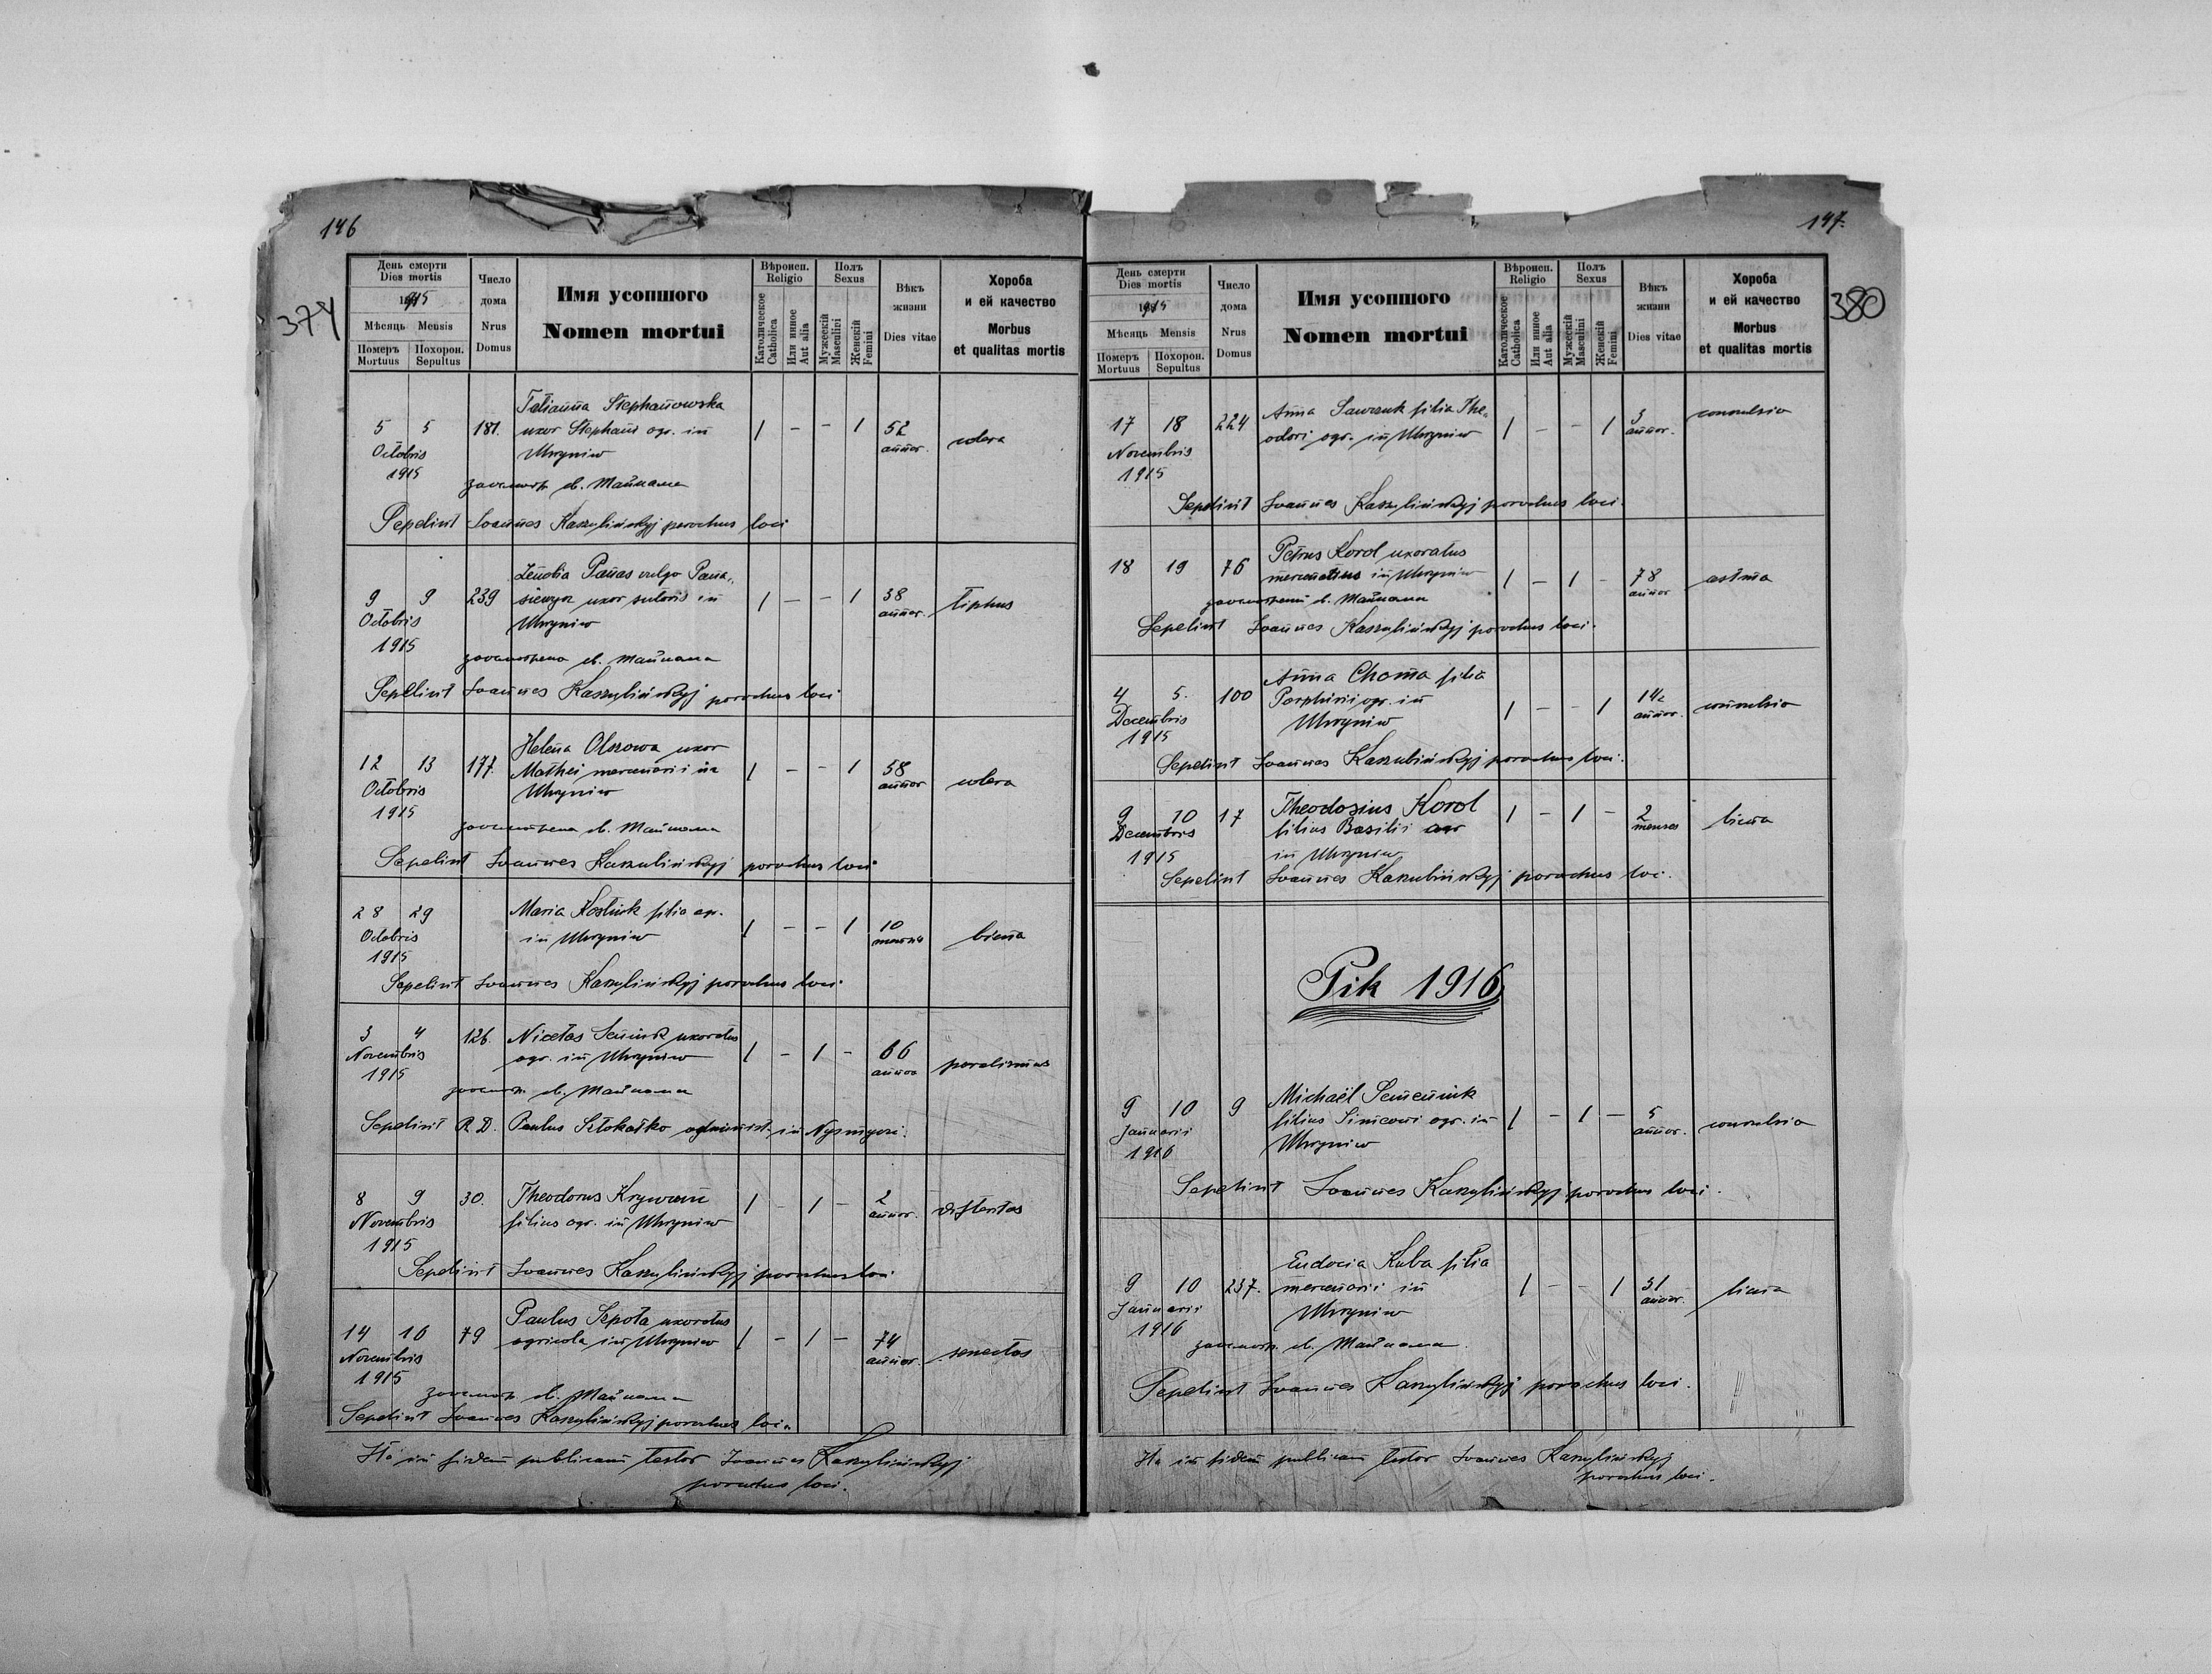 146
374
День смерти
Dies mortis
1915
Мѣсяць Mensis
Померъ Mortuus
Похорон. Sepultus
Число дома
Nrus Domus
Имя усопшого
Nomen mortui
Вѣроисп.
Religio
Католическое Catholica
Или инное Aut alia
Полъ
Sexus
Мужескій Masculini
Женскій Femini
Вѣкъ жизни
Dies vitae
Хороба
и ей качество
Morbus
et qualitas mortis
Tatianna Stephanowska
5 5 181. uxor Stephani agr. in 1 - - 1 52 colera
Octobris Uhryniw annor.
1915
заосмотр. св. Тайнами
Sepelivit Joannes Kaszylińskyj parochus loci
Zenobia Panas vulgo Pana-
9 9 239 siewycz uxor sutoris in 1 - - 1 38 tiphus
Octobris Uhryniw annor.
1915
заосмотрена св. Тайнами
Sepelivit Joannes Kaszylińskyj parochus loci
Helena Olszowa uxor
12 13 177. Mathei mercenarii in 1 - - 1 58 colera
Octobris Uhryniw annor
1915
заосмотрена св. Тайнами
Sepelivit Joannes Kaszulińskyj parochus loci
28 29 Maria Kostiuk filia agr. 1 - - 1 10
Octobris in Uhryniw
1915
Sepelivit Joannes Kaszylińskyj parochus loci
3 4 126. Nicetas Seniuk uxoratus
Novembris agr. in Uhryniw 1 - 1 - 66
1915
заосмотр. св. Тайнами
Sepelivit R. D. Paulus administ. in
8 9 30. Theodorus Krywań 1 - 1 - 2
Novembris filius agr. in Uhryniw annor.
1915
Sepelivit Joannes Kaszylińskyj parochus loci
Paulus Sepota uxoratus
14 16 79 agricola in Uhryniw 1 - 1 - 74 senectas
Novembris annor.
1915
заосмотр. св. Тайнами
Sepelivit Joannes Kaszylińskyj parochus loci.
Ita in fidem publicam testor Joannes Kaszylińskyj
parochus loci.
147.
380
День смерти
Dies mortis
1915
Мѣсяць Mensis
Померъ Mortuus
Похорон. Sepultus
Число дома
Nrus Domus
Имя усопшого
Nomen mortui
Вѣроисп.
Religio
Католическое Catholica
Или инное Aut alia
Полъ
Sexus
Мужескій Masculini
Женскій Femini
Вѣкъ жизни
Dies vitae
Хороба
и ей качество
Morbus
et qualitas mortis
17 18 224 Anna Sawczuk filia The- 1 - - 1 3 convulsio
Novembris odori agr. in Uhryniw annor.
1915
Sepelivit Joannes Kaszylińskyj parochus loci.
18 19 76 Petrus Korol uxoratus 1 - 1 - 78 astma
mercenarius in Uhryniw annor
заосмотрений св. Тайнами
Sepelivit Joannes Kaszulińskyj parochus loci.
Anna Choma filia
4 5. 100 Porphirii agr. in 1 - - 1 convulsio
Decembris Uhryniw annor.
1915
Sepelivit Joannes Kaszulińskyj parochus loci.
9 10 17 Theodosius Korol 1 - 1 - 2
Decembris filius Basilii agr menses
1915 in Uhryniw
Sepelivit Joannes Kaszulińskyj parochus loci.
Рік 1916
9 10 9 Michaël Semeniuk 1 - 1 - 5 convulsio
Januarii filius Simeoni agr. in annor.
1916 Uhryniw
Sepelivit Joannes Kaszylińskyj parochus loci.
Eudocia Kuba filia
9 10 237. mercenarii in 1 - - 1 31
Januarii Uhryniw annor.
1916
заосмотр. св. Тайнами.
Sepelivit Joannes Kaszylińskyj parochus loci.
Ita in fidem publicam testor Joannes Kaszylińskyj
parochus loci.